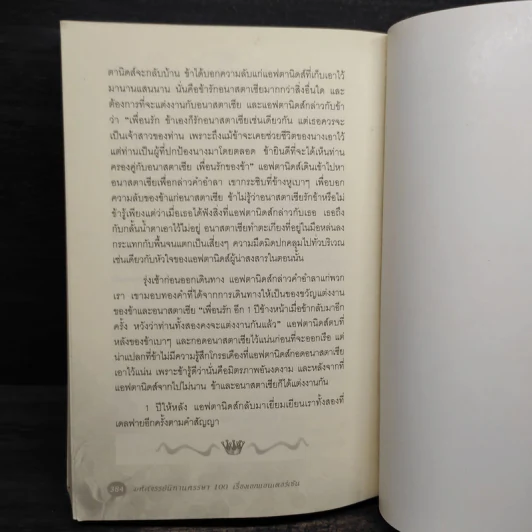 ตานิดส์จะกลับบ้าน ข้าได้บอกความลับแก่แอฟตานิดส์ที่เก็บเอาไว้
มานานแสนนาน นั่นคือข้ารักอนาสตาเซียมากกว่าสิ่งอื่นใด และ
ต้องการที่จะแต่งงานกับอนาสตาเซีย และแอฟตานิดส์กล่าวกับข้า
ว่า "เพื่อนรัก ข้าเองก็รักอนาสตาเซียเช่นเดียวกัน แต่เธอควรจะ
เป็นเจ้าสาวของท่าน เพราะถึงแม้ข้าจะเคยช่วยชีวิตของนางเอาไว้
แต่ท่านเป็นผู้ที่ปกป้องนางมาโดยตลอด ข้ายินดีที่จะได้เห็นท่าน
ครองคู่กับอนาสตาเซีย เพื่อนรักของข้า" แอฟตานิดส์เดินเข้าไปหา
อนาสตาเซียเพื่อกล่าวคำอำลา เขากระซิบที่ข้างหูเบาๆ เพื่อบอก
ความลับของข้าแก่อนาสตาเซีย ข้าไม่รู้ว่าอนาสตาเซียรักข้าหรือไม่
ข้ารู้เพียงแต่ว่าเมื่อเธอได้ฟังสิ่งที่แอฟตานิดส์กล่าวกับเธอ เธอถึง
กับกลั้นน้ำตาเอาไว้ไม่อยู่ อนาสตาเซียทำตะเกียงที่อยู่ในมือหล่นลง
กระแทกกับพื้นจนแตกเป็นเสี่ยงๆ ความมืดมิดปกคลุมไปทั่วบริเวณ
เช่นเดียวกับหัวใจของแอฟตานิดส์ผู้น่าสงสารในตอนนั้น
รุ่งเช้าก่อนออกเดินทาง แอฟตานิดส์กล่าวคำอำลาแก่พวก
เรา เขามอบทองคำที่ได้จากการเดินทางให้เป็นของขวัญแต่งงาน
ของข้าและอนาสตาเซีย "เพื่อนรัก อีก 1 ปีข้างหน้าเมื่อข้ากลับมาอีก
ครั้ง หวังว่าท่านทั้งสองคงจะแต่งงานกันแล้ว" แอฟตานิดส์ตบที่
หลังของข้าเบาๆ และกอดอนาสตาเซียไว้แน่นก่อนที่จะออกเรือ แต่
น่าแปลกที่ข้าไม่มีความรู้สึกโกรธเคืองที่แอฟตานิดส์กอดอนาสตาเซีย
เอาไว้แน่น เพราะข้ารู้ดีว่านั่นคือมิตรภาพอันงดงาม และหลังจากที่
แอฟตานิดส์จากไปไม่นาน ข้าและอนาสตาเซียก็ได้แต่งงานกัน
1 ปีให้หลัง แอฟตานิดส์กลับมาเยี่ยมเยียนเราทั้งสองที่
เดลฟายอีกครั้งตามคำสัญญา
384 มหัศจรรย์นิทานหรรษา 100 เรื่องเอกแอนเดอร์เซ็น